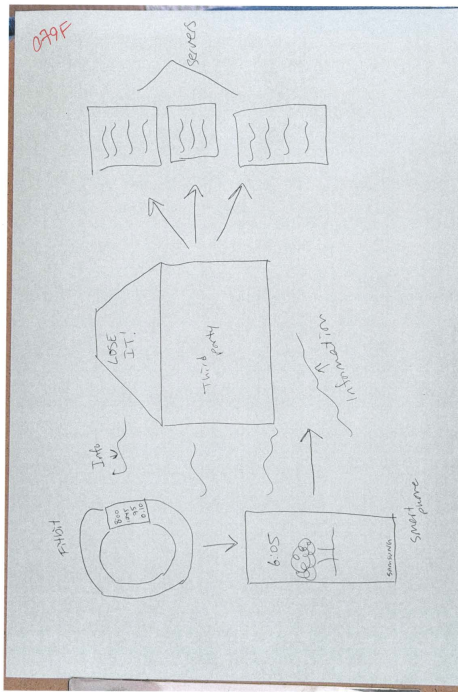 079F
servers
LOSE
IT!
Third
party
Info
Information
Fitbit
8:00
6:05
SAMSUNG
smart
phone